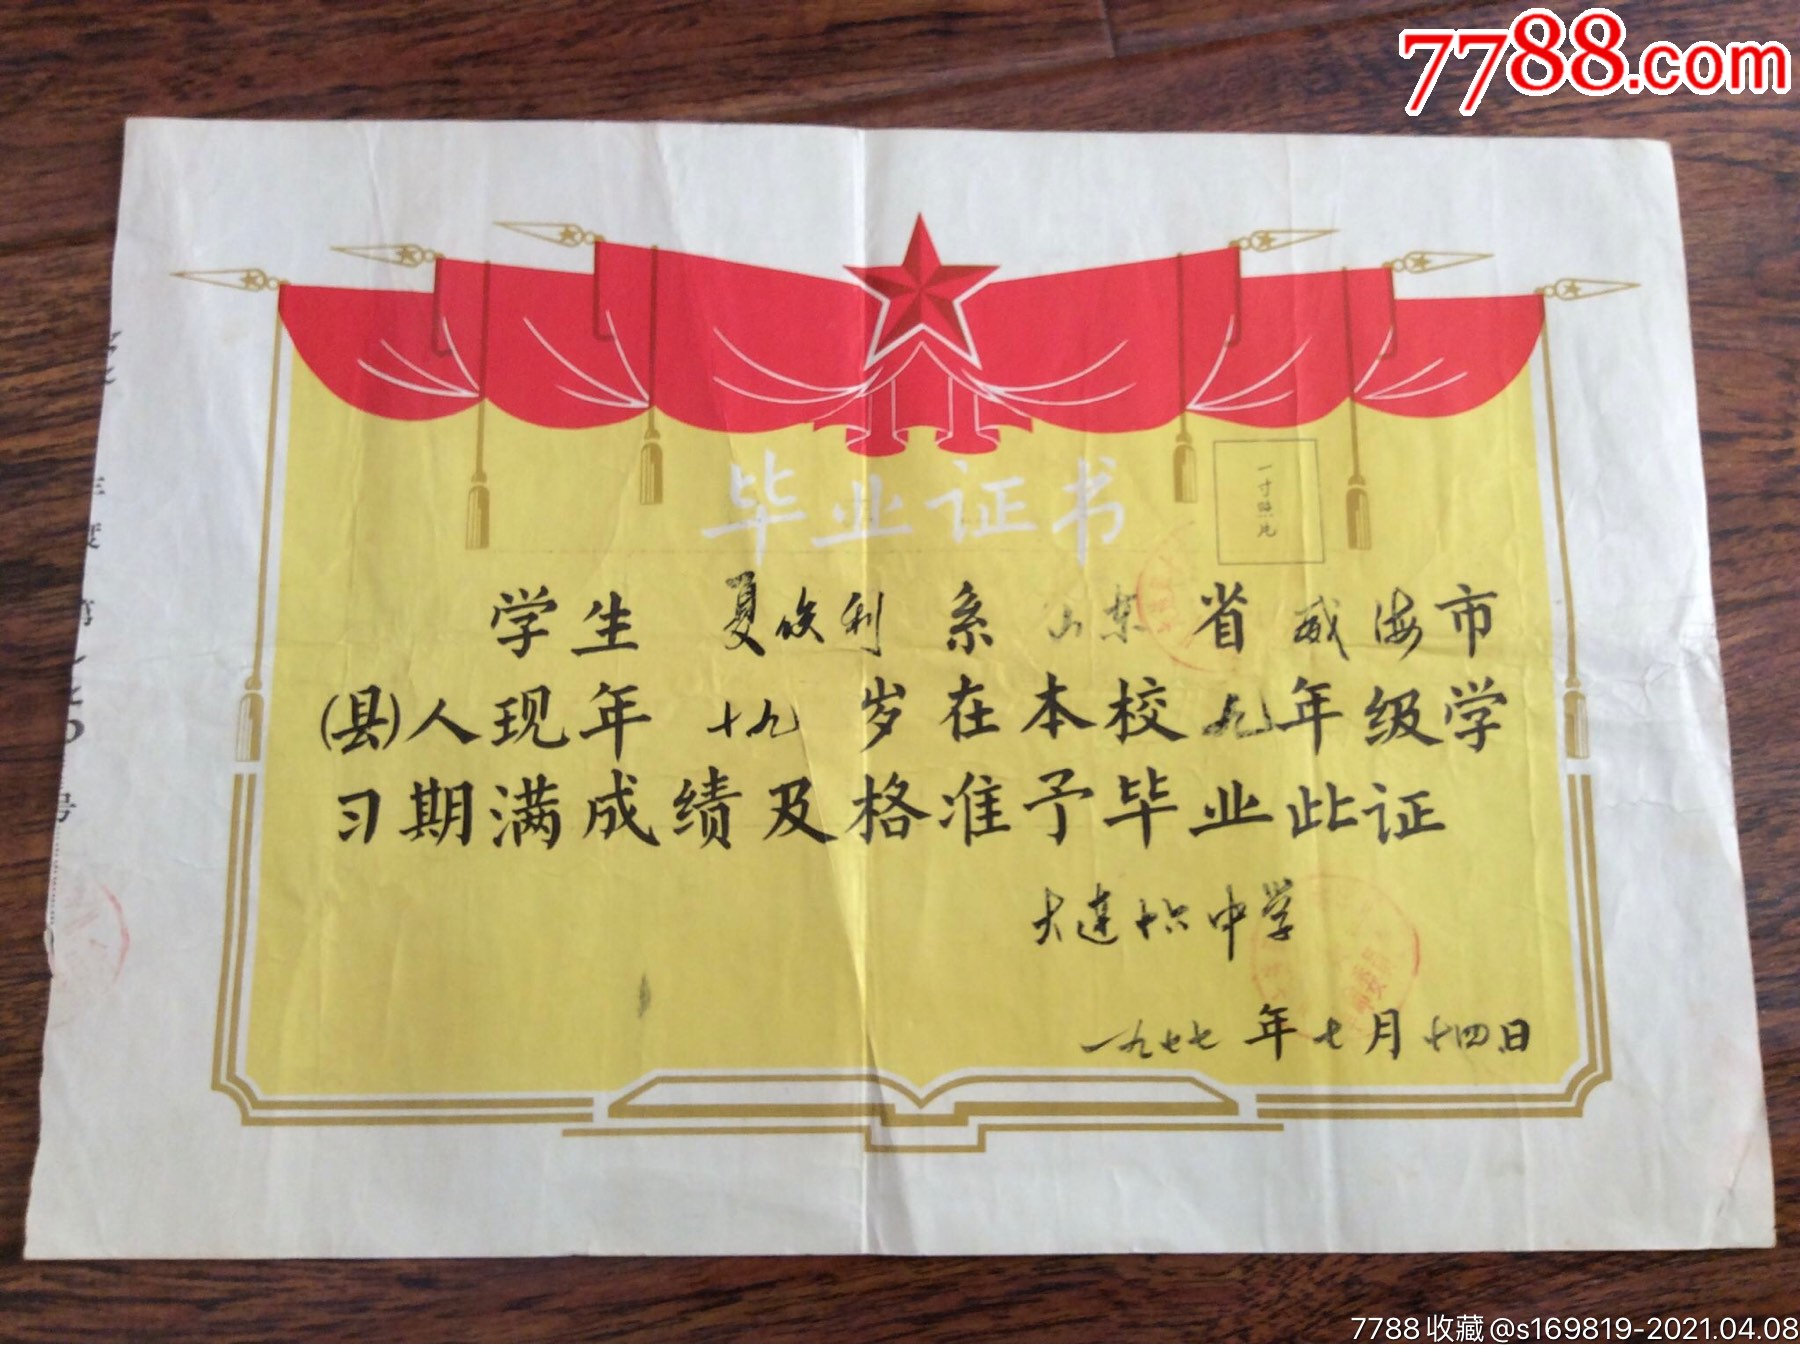 7788.com
毕业证书
一寸照片
学生 夏俊利 系 山东 省 威海市
(县)人现年 十九 岁在本校九年级学
习期满成绩及格准予毕业此证
大连十六中学
一九七七年七月十四日
年度第
号
7788收藏@s169819-2021.04.08